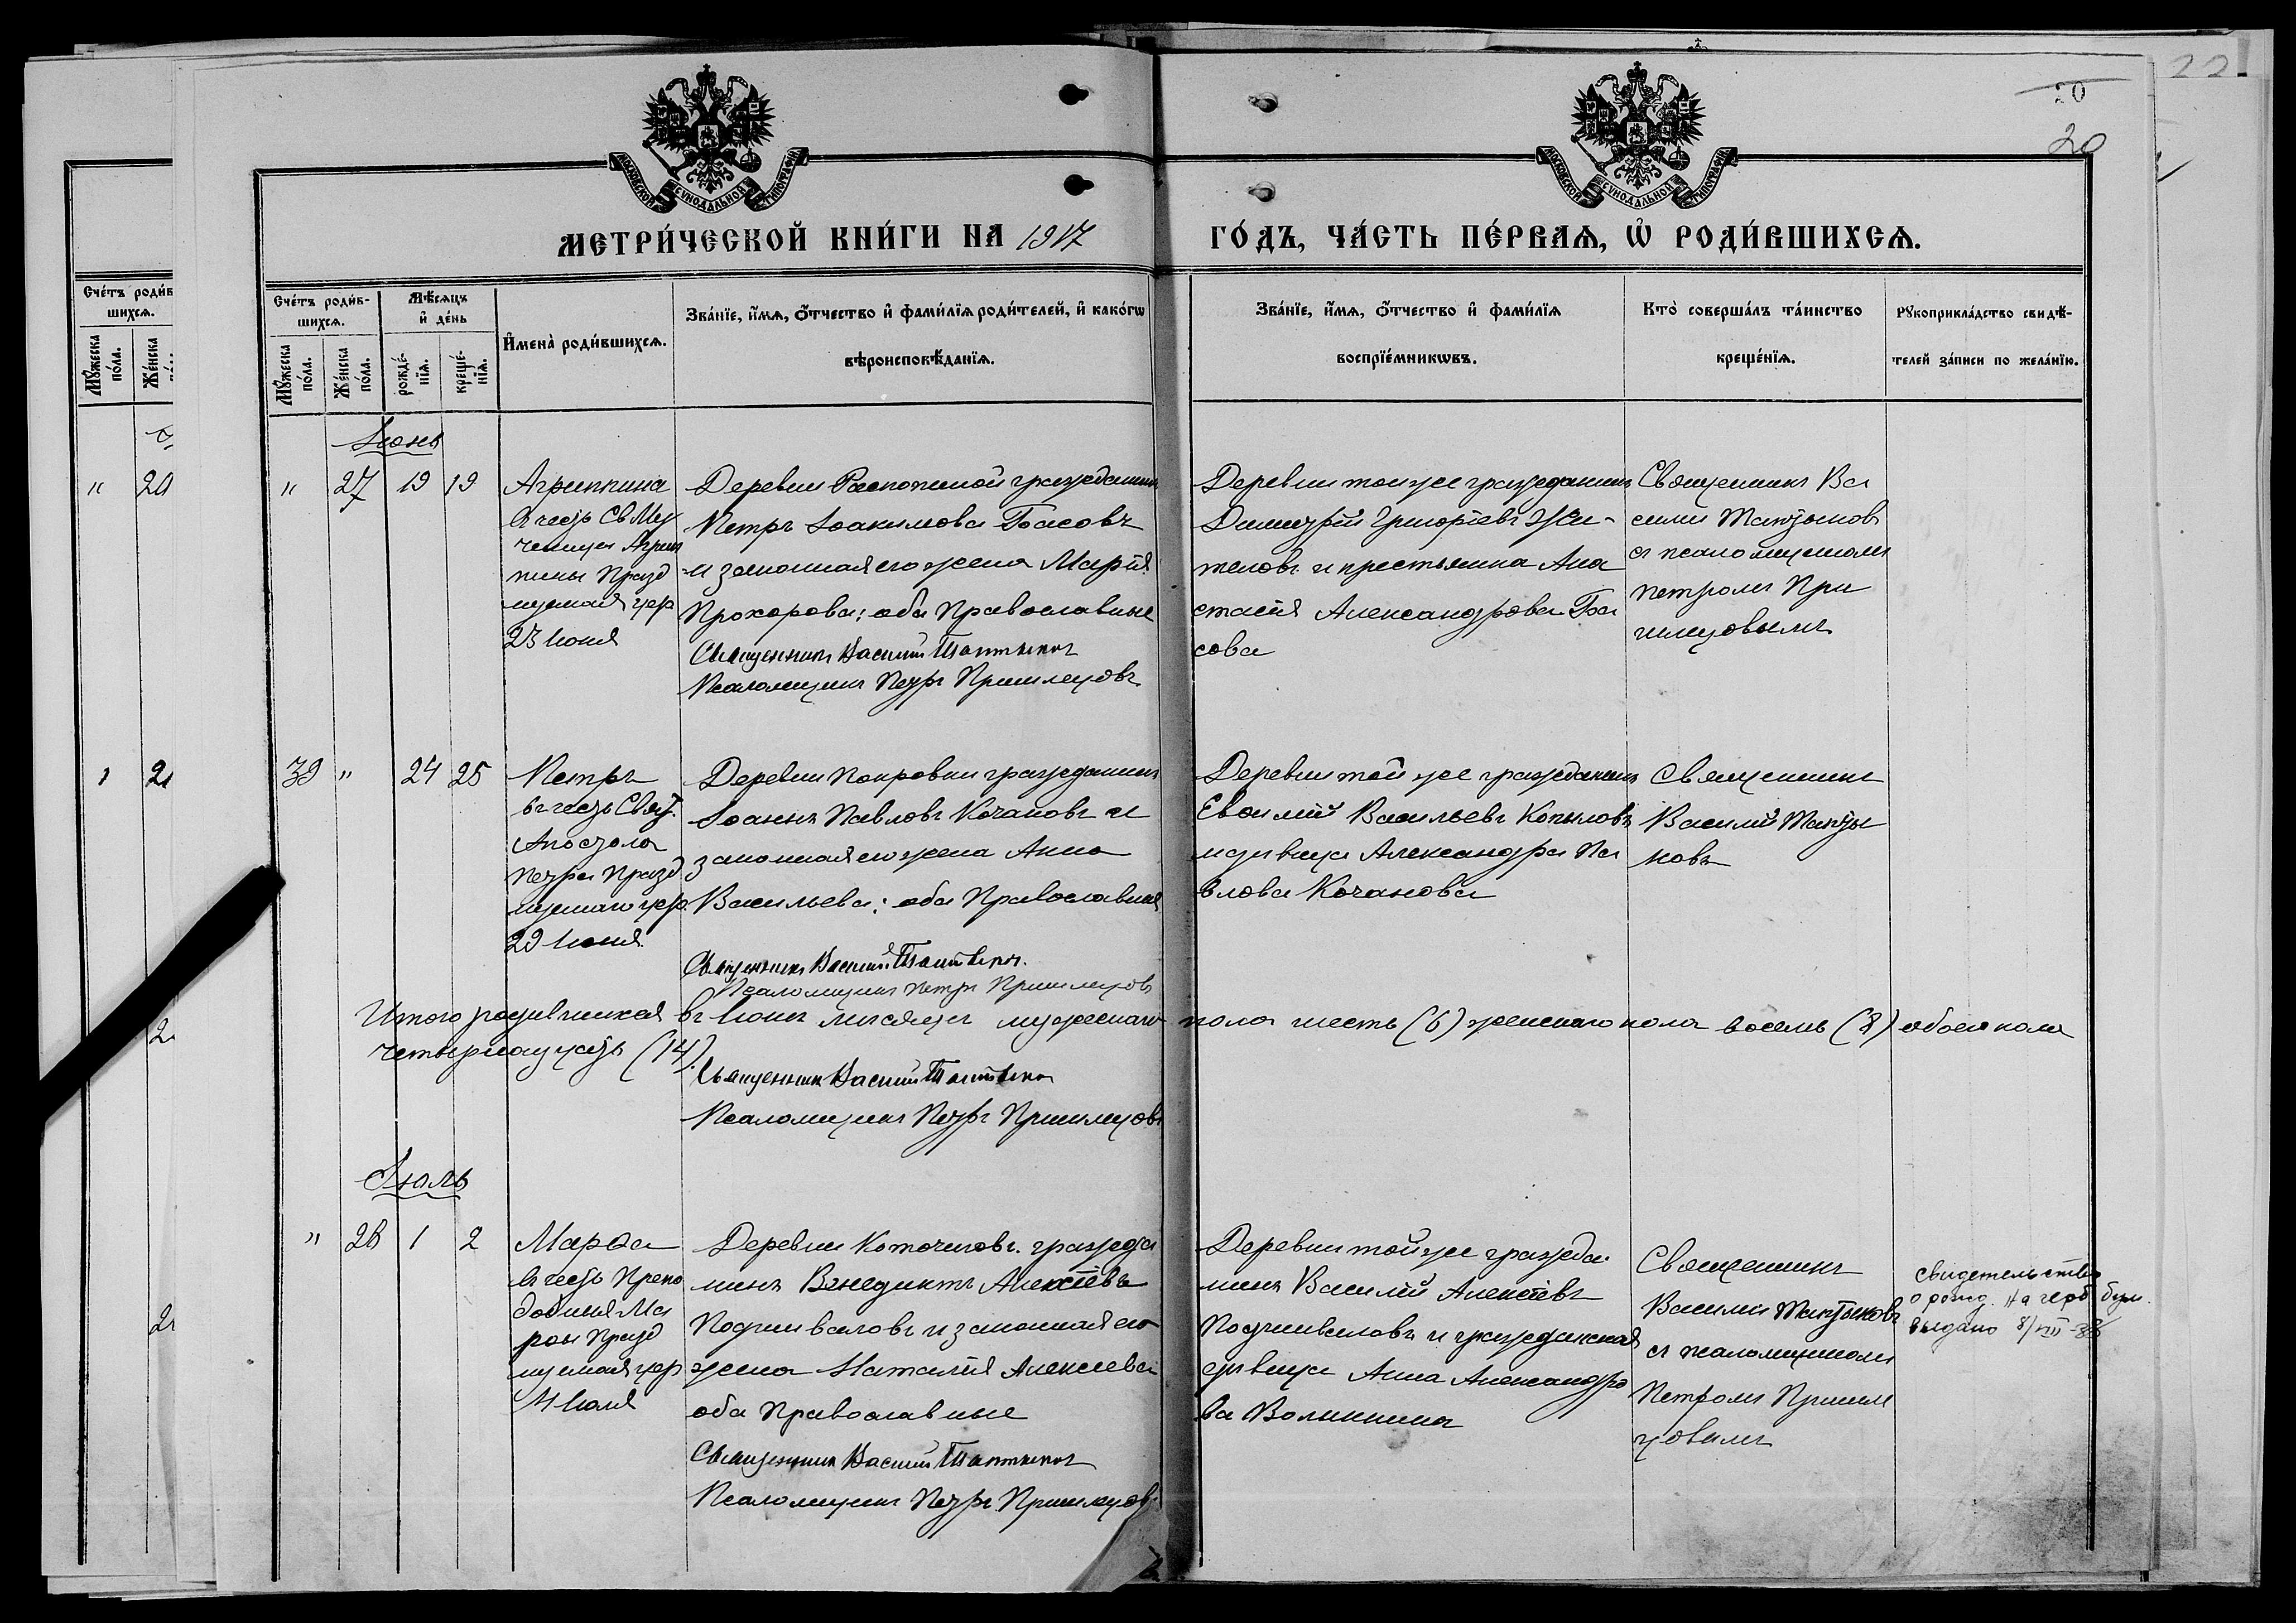 22
20
20
МОСКОВСКОЙ СѴНОДАЛЬНОЙ ТИПОГРАФІИ
МОСКОВСКОЙ СѴНОДАЛЬНОЙ ТИПОГРАФІИ
МЕТРИ́ЧЕСКОЙ КНИ́ГИ НА 1917
ГО́ДЪ, ЧА́СТЬ ПЕ́РВАѦ, Ѿ РОДИ́ВШИХСѦ.
Сче́тъ роди́в-
шихсѧ.
Мꙋ́жеска по́ла.
Же́нска по́ла.
Мѣ́сѧцъ
и҆ де́нь
рожде́-
нїѧ.
креще́-
нїѧ.
И҆мена̀ роди́вшихсѧ.
Зва́нїе, и҆́мѧ, ѻ҆́тчество и҆ фами́лїѧ роди́телей, и҆ како́гѡ
вѣроисповѣ́данїѧ.
Зва́нїе, и҆́мѧ, ѻ҆́тчество и҆ фами́лїѧ
воспрїе́мникѡвъ.
Кто̀ соверша́лъ та́инство
креще́нїѧ.
Рꙋкоприкла́дство свидѣ́-
телей за́писи по жела́нїю.
Іюнь
" 27 19 19
Агриппина
въ честь Св Му
ченицы Агрип
пины Празд
нуемая цер
23 Іюня
Деревни гражданинъ
Петръ Іоакимовъ Басовъ
и законная его жена Марія
Прохорова; оба Православные
Священникъ Василій
Псаломщикъ Петръ Пришлецовъ
Деревни той же гражданинъ
Димитрій Григоріевъ
и крестьянка Ана
стасія Александрова Ба
сова
Священникъ Ва
силій
съ псаломщикомъ
Петромъ При
шлецовымъ
39 " 24 25
Петръ
въ честь Свят.
Апостола
Петра Празд
нуемаго цер.
29 Іюня
Деревни Покровки гражданинъ
Іоаннъ Павловъ Кочановъ и
законная его жена Анна
Васильева; оба Православные
Священникъ Василій
Псаломщикъ Петръ Пришлецовъ
Деревни той же гражданинъ
Евѳимій Васильевъ Копыловъ
и дѣвица Александра Па
влова Кочанова
Священникъ
Василій
Итого родившихся въ Іюнѣ мѣсяцѣ мужескаго пола шесть (6) женскаго пола восемь (8) обоего пола
четырнадцать (14).
Священникъ Василій
Псаломщикъ Петръ Пришлецовъ
Іюль
" 28 1 2
Марѳа
въ честь Препо
добныя Ма
рѳы Празд
нуемая цер
4 Іюля
Деревни гражда
нинъ Венедиктъ Алексѣевъ
Подшиваловъ и законная его
жена Наталія Алексѣева
оба Православные
Священникъ Василій
Псаломщикъ Петръ Пришлецовъ
Деревни той же гражда
нинъ Василій Алексѣевъ
Подшиваловъ и гражданская
дѣвица Анна Александро
ва
Священникъ
Василій
съ псаломщикомъ
Петромъ Пришле
цовымъ
свидетельство
о рожд. на герб бум.
выдано 8/VIII